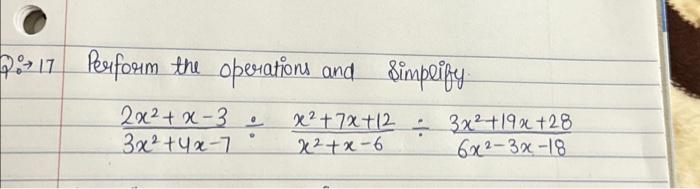 Q:→ 17 Perform the operations and simplify.
2x²+x-3 / 3x²+4x-7 ÷ x²+7x+12 / x²+x-6 ÷ 3x²+19x+28 / 6x²-3x-18